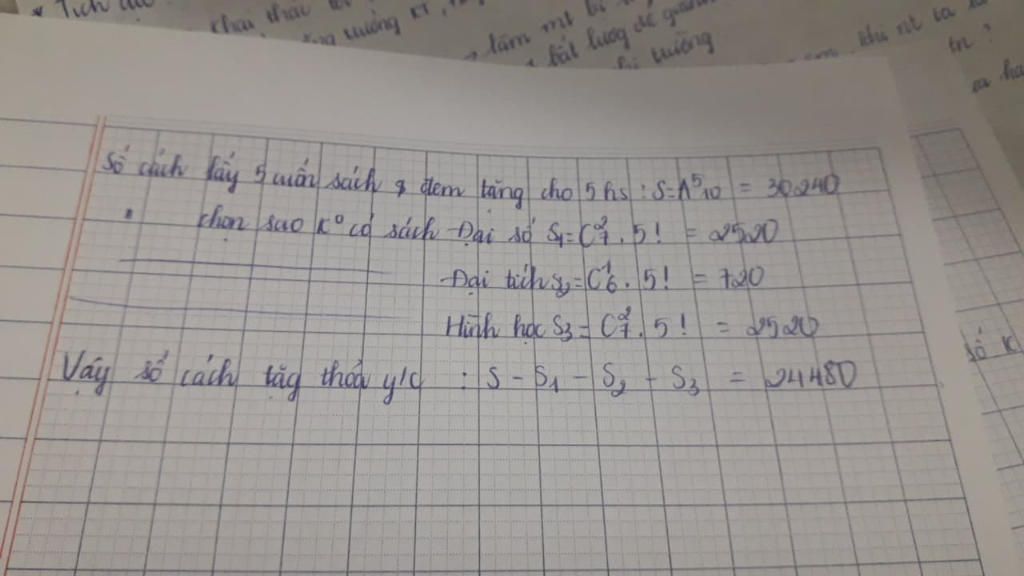 * Tích
khai thác
trường KT,
làm mt bị
bất lương để giành
thị trường
khi nt ca
tn?
ca ha
Số cách lấy 5 cuốn sách & đem tặng cho 5 hs : S = A⁵₁₀ = 30.240
chọn sao K° có sách Đại số S₁ = C²₇ . 5! = 2520
Đại tích S₂ = C¹₆ . 5! = 720
Hình học S₃ = C²₇ . 5! = 2520
số K
Vậy số cách tặg thỏa y/c : S - S₁ - S₂ - S₃ = 24480